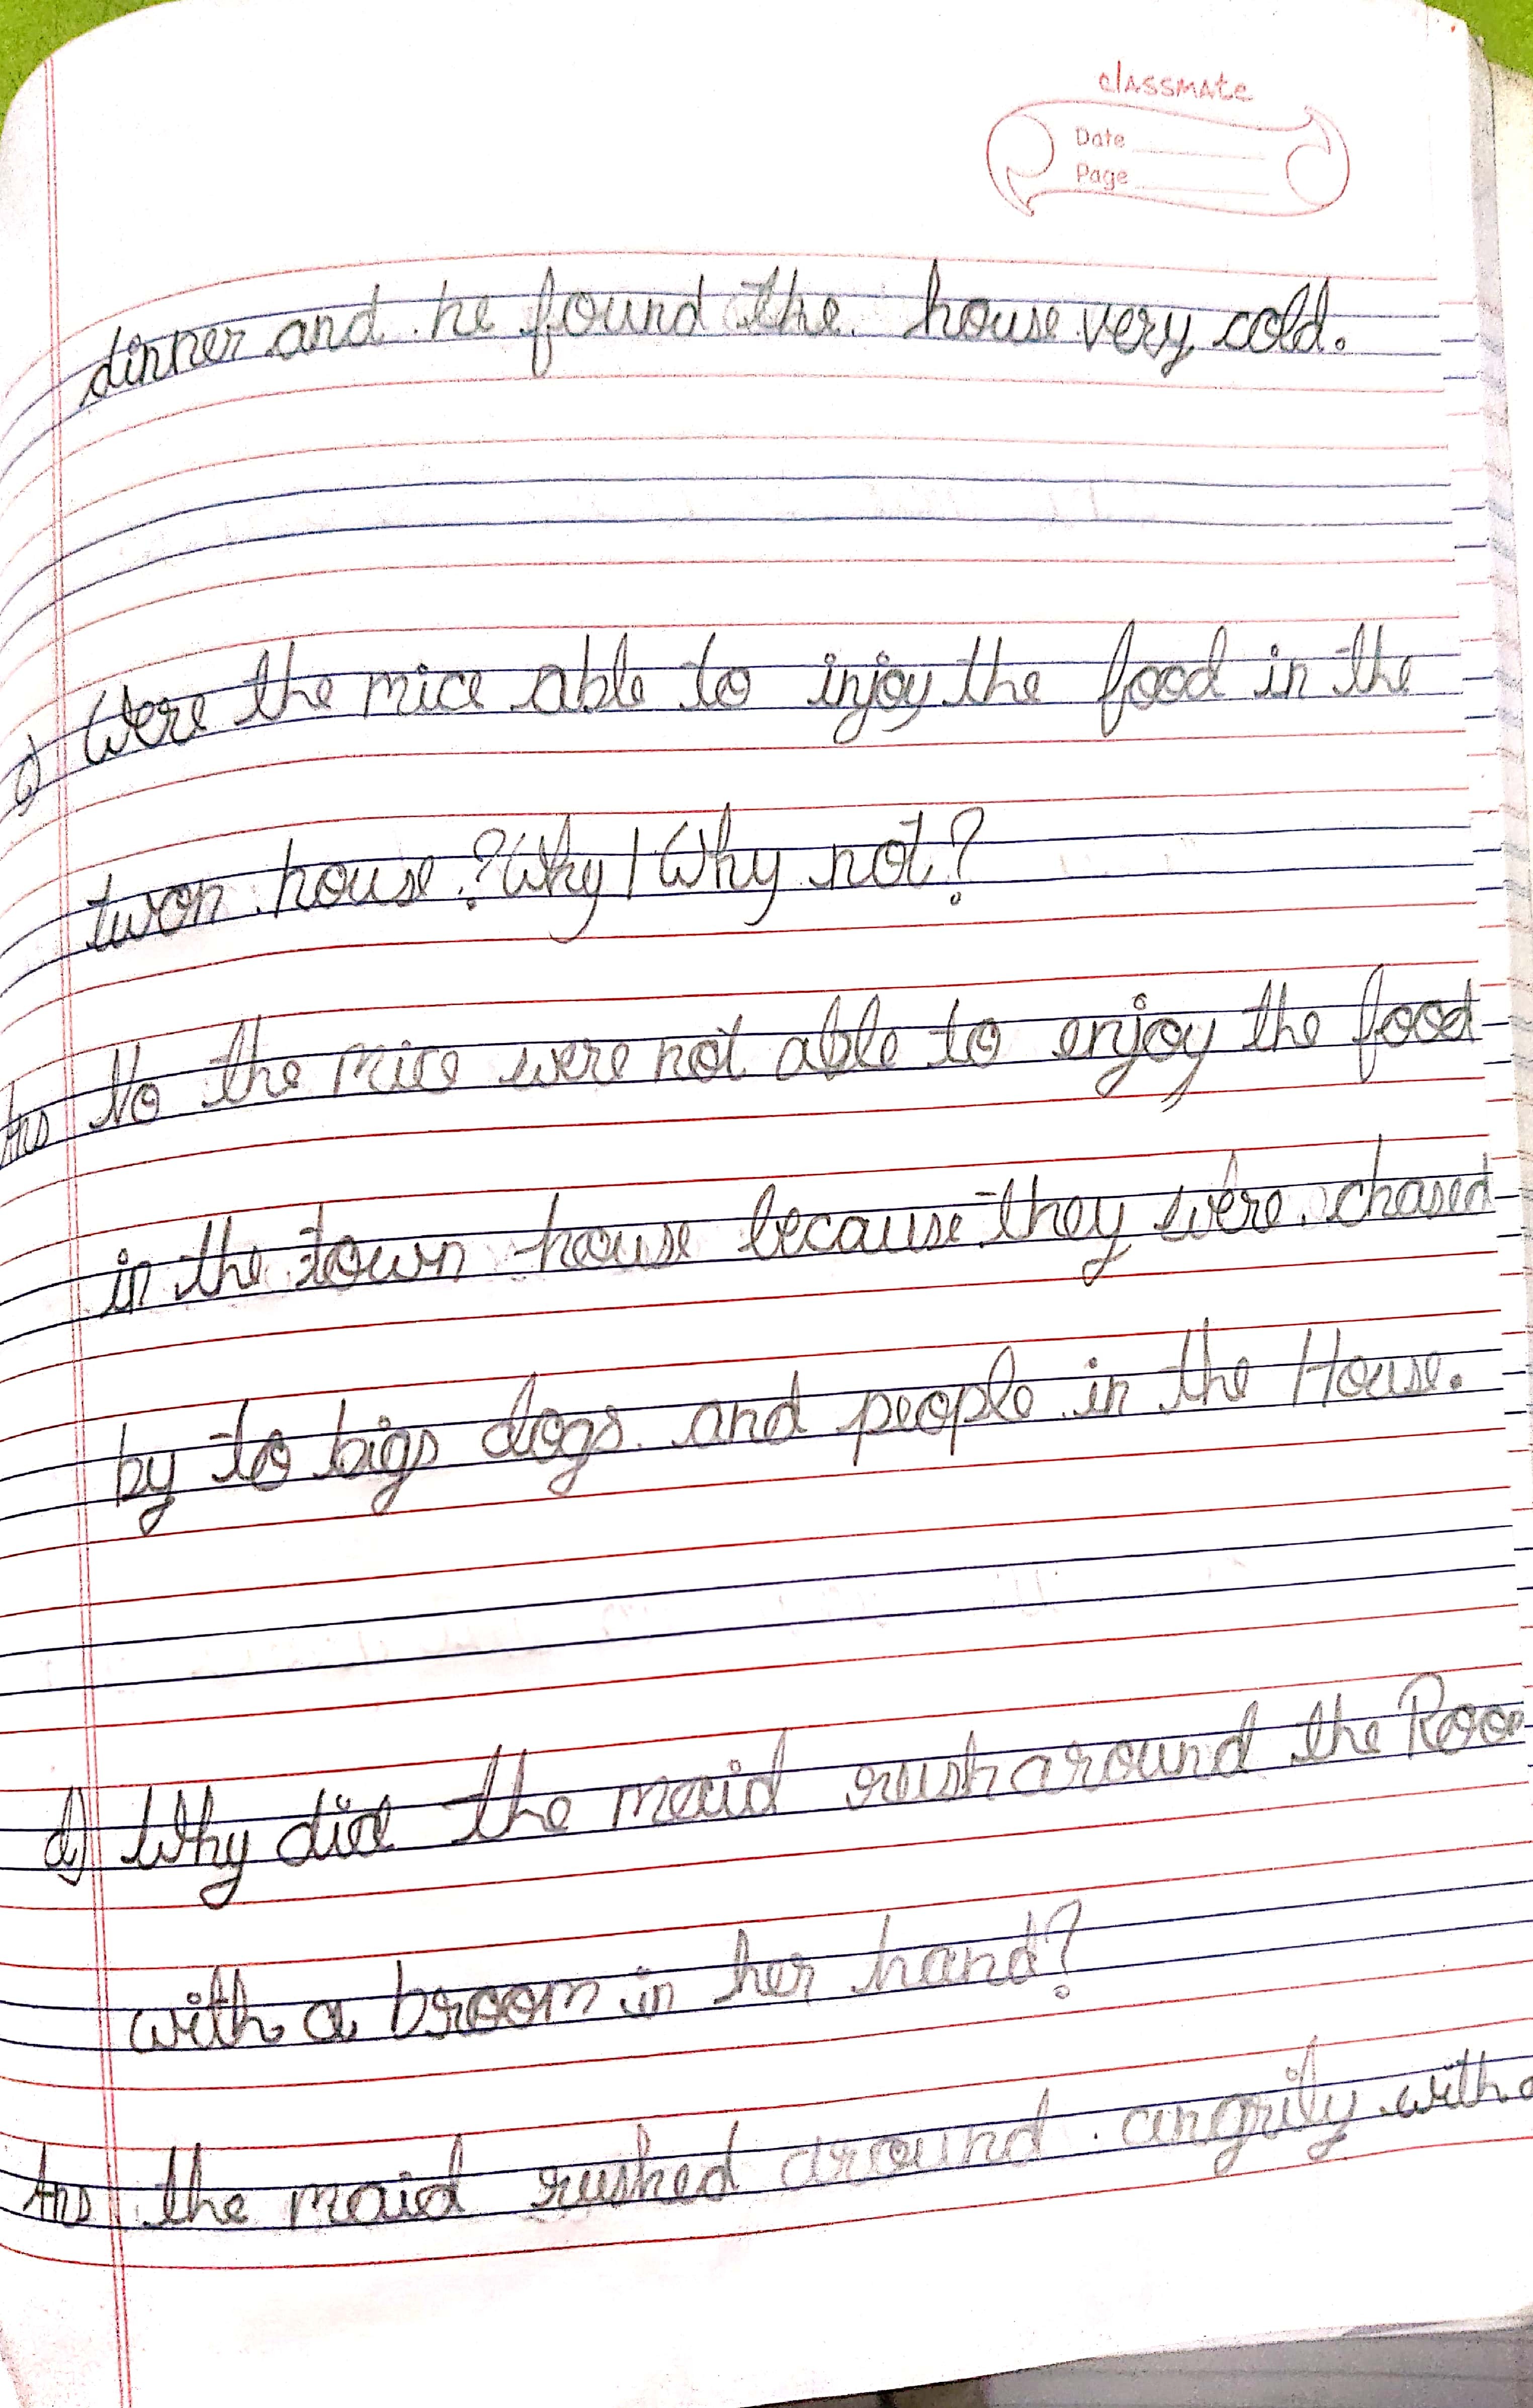 classmate
Date
Page
dinner and he found the house very cold.
c) Were the mice able to injoy the food in the
twon house? Why / Why not?
Ans No the mice were not able to enjoy the food
in the town house because they were chased
by to bigs dogs and people in the House.
d) Why did the maid rush around the Roo
with a broom in her hand?
Ans the maid rushed around angrily with a